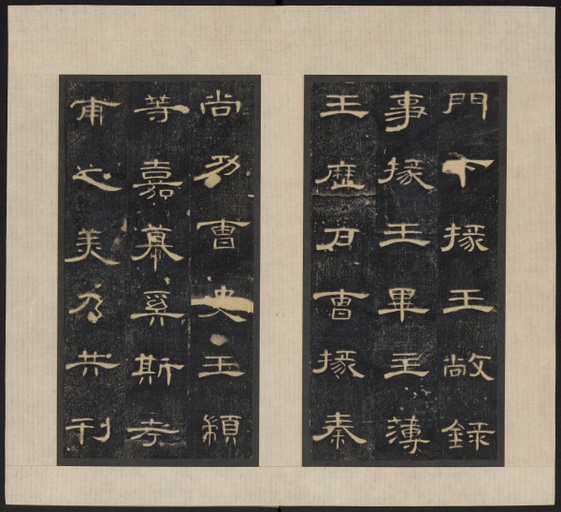 門下掾王敞録
事掾王畢主薄
王歷戶曹掾秦
尚功曹史王顓
等嘉慕奚斯考
甫之美乃共刊